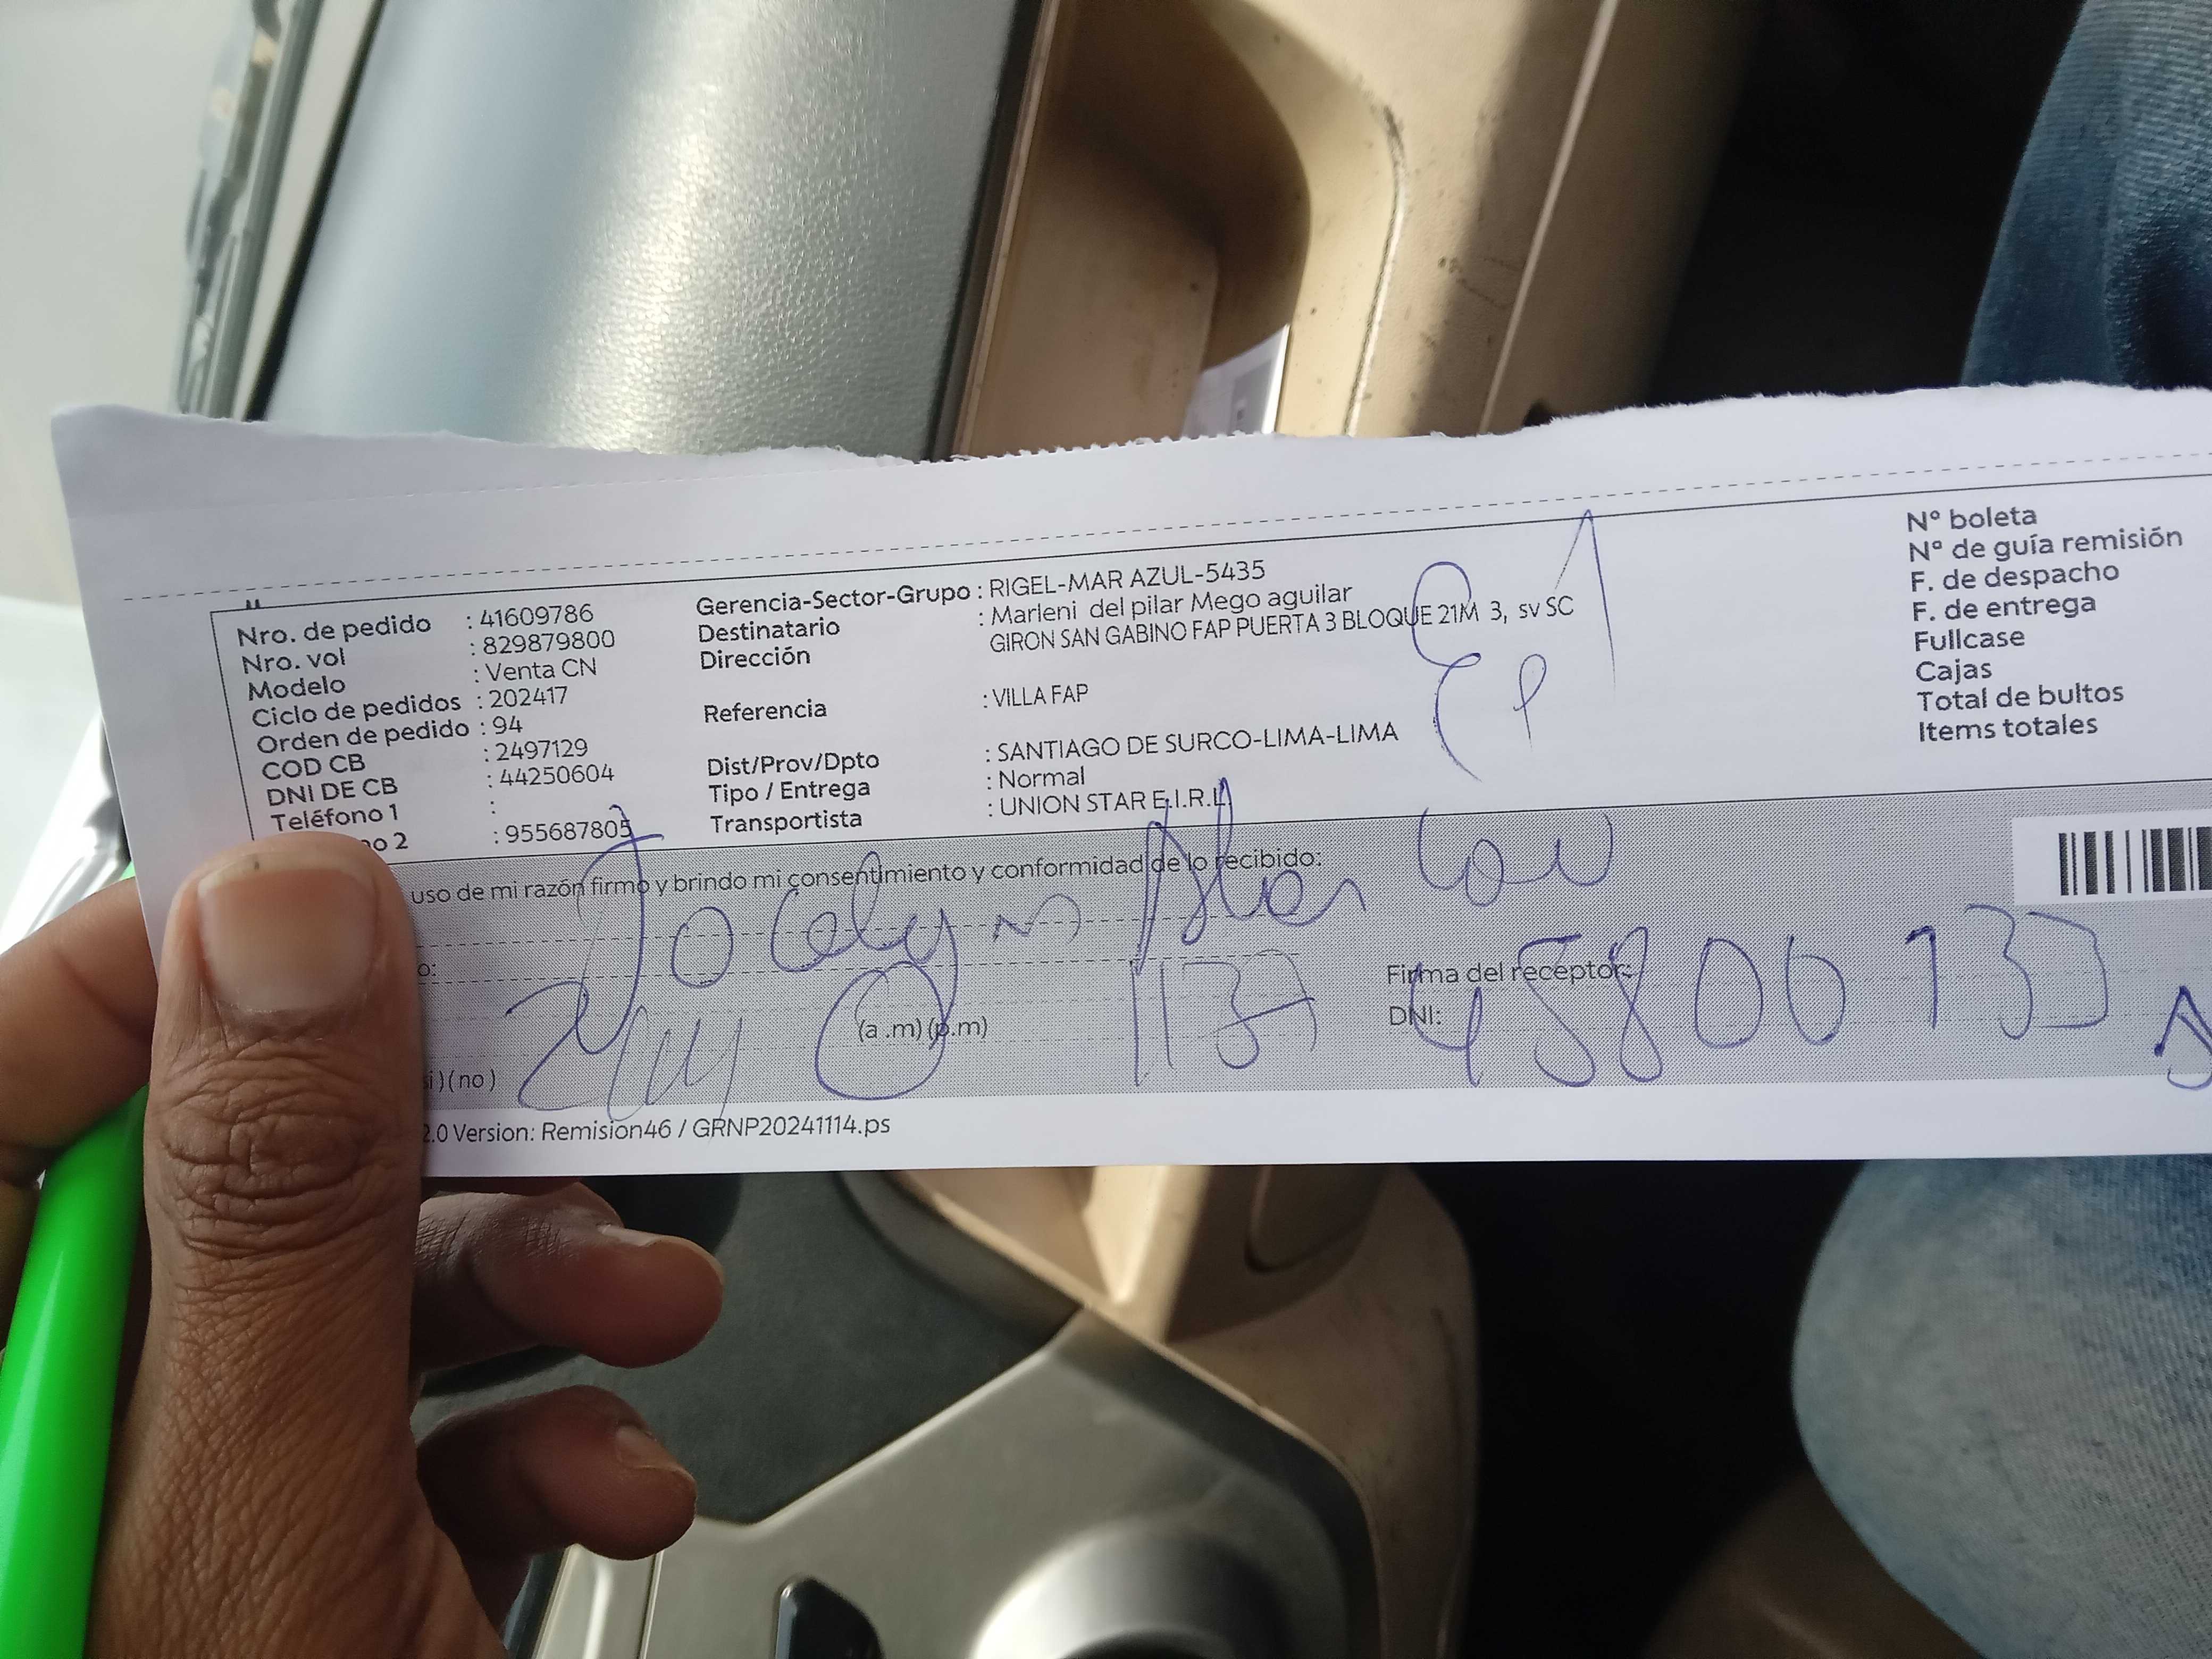 Nro. de pedido : 41609786
Nro. vol : 829879800
Modelo : Venta CN
Ciclo de pedidos : 202417
Orden de pedido : 94
COD CB : 2497129
DNI DE CB : 44250604
Teléfono 1 :
no 2 : 955687805
Gerencia-Sector-Grupo : RIGEL-MAR AZUL-5435
Destinatario : Marleni del pilar Mego aguilar
Dirección GIRON SAN GABINO FAP PUERTA 3 BLOQUE 21M 3, sv SC
Referencia : VILLA FAP
Dist/Prov/Dpto : SANTIAGO DE SURCO-LIMA-LIMA
Tipo / Entrega : Normal
Transportista : UNION STAR E.I.R.L
Nº boleta
Nº de guía remisión
F. de despacho
F. de entrega
Fullcase
Cajas
Total de bultos
Items totales
uso de mi razón firmo y brindo mi consentimiento y conformidad de lo recibido:
Jocelyn
o:
Firma del receptor:
(a .m) (p.m)
1137
DNI: 45800133
si ) ( no )
2.0 Version: Remision46 / GRNP20241114.ps